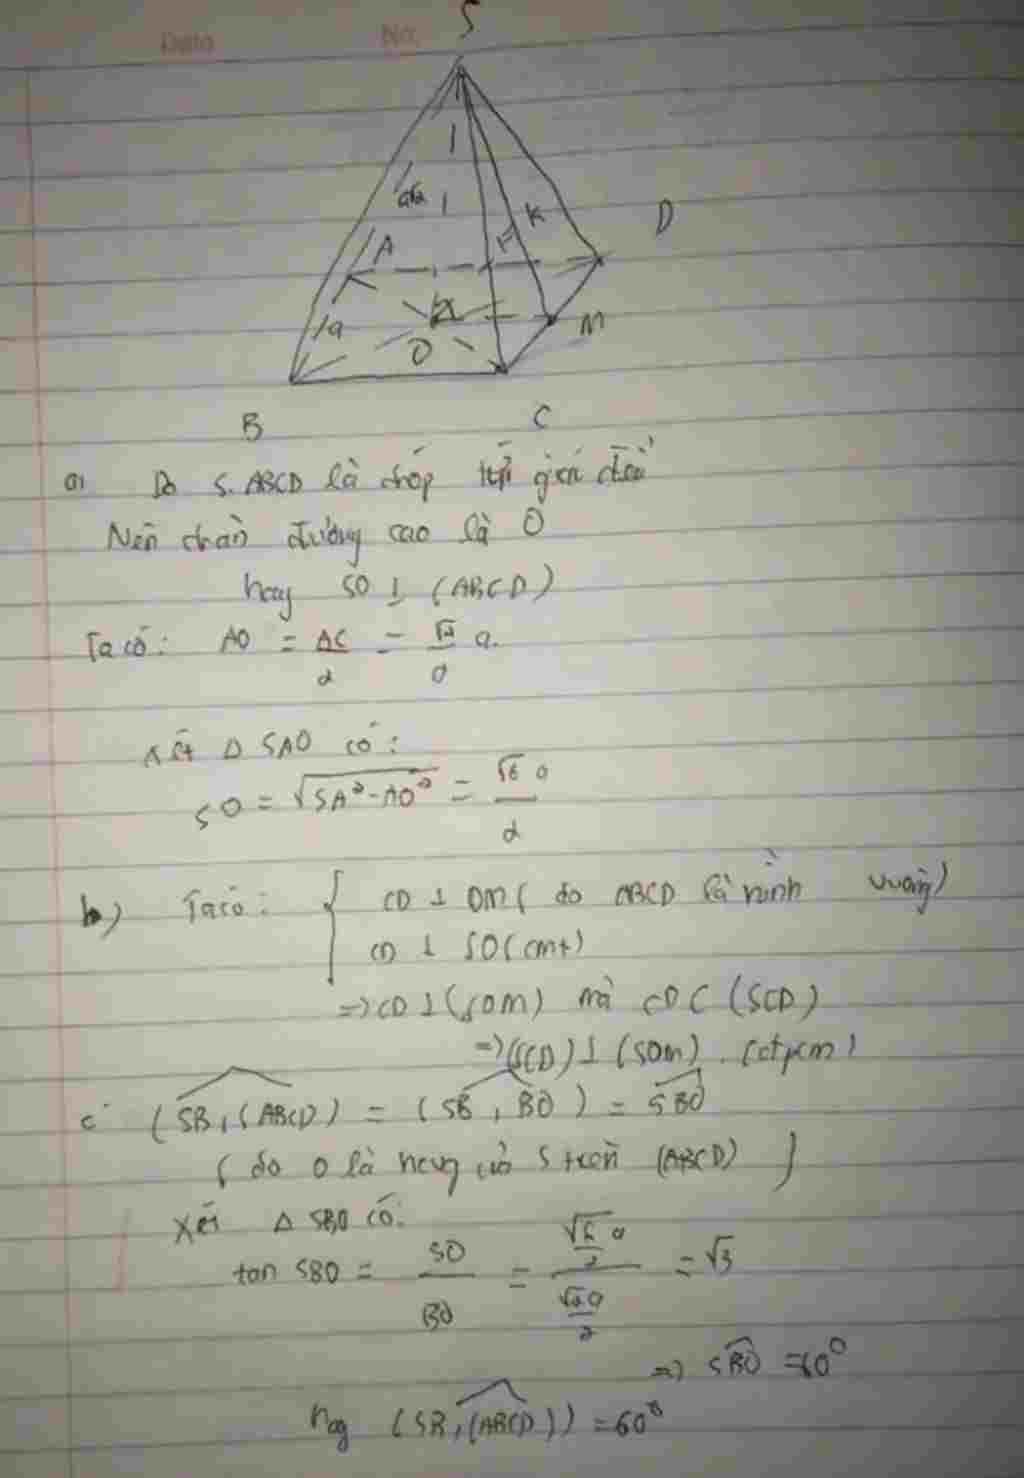 Date No.
S
a√2
K
D
A
a
M
O
B
C
a, Do S.ABCD là chóp tứ giác đều
Nên chân đường cao là O
hay SO ⊥ (ABCD)
Ta có: AO = AC/2 = √2/2 a.
Xét Δ SAO có:
SO = √(SA² - AO²) = √6 a/2
b) Ta có: { CD ⊥ OM ( do ABCD là hình vuông)
CD ⊥ SO (cmt)
=> CD ⊥ (SOM) mà CD ⊂ (SCD)
=> (SCD) ⊥ (SOM). (đpcm)
c (SB, (ABCD) = (SB, BO) = SBO
( do O là hcvg của S trên (ABCD) )
Xét Δ SBO có:
tan SBO = SO/BO = (√6 a/2)/(√2 a/2) = √3
=> SBO = 60⁰
hay (SB, (ABCD)) = 60⁰